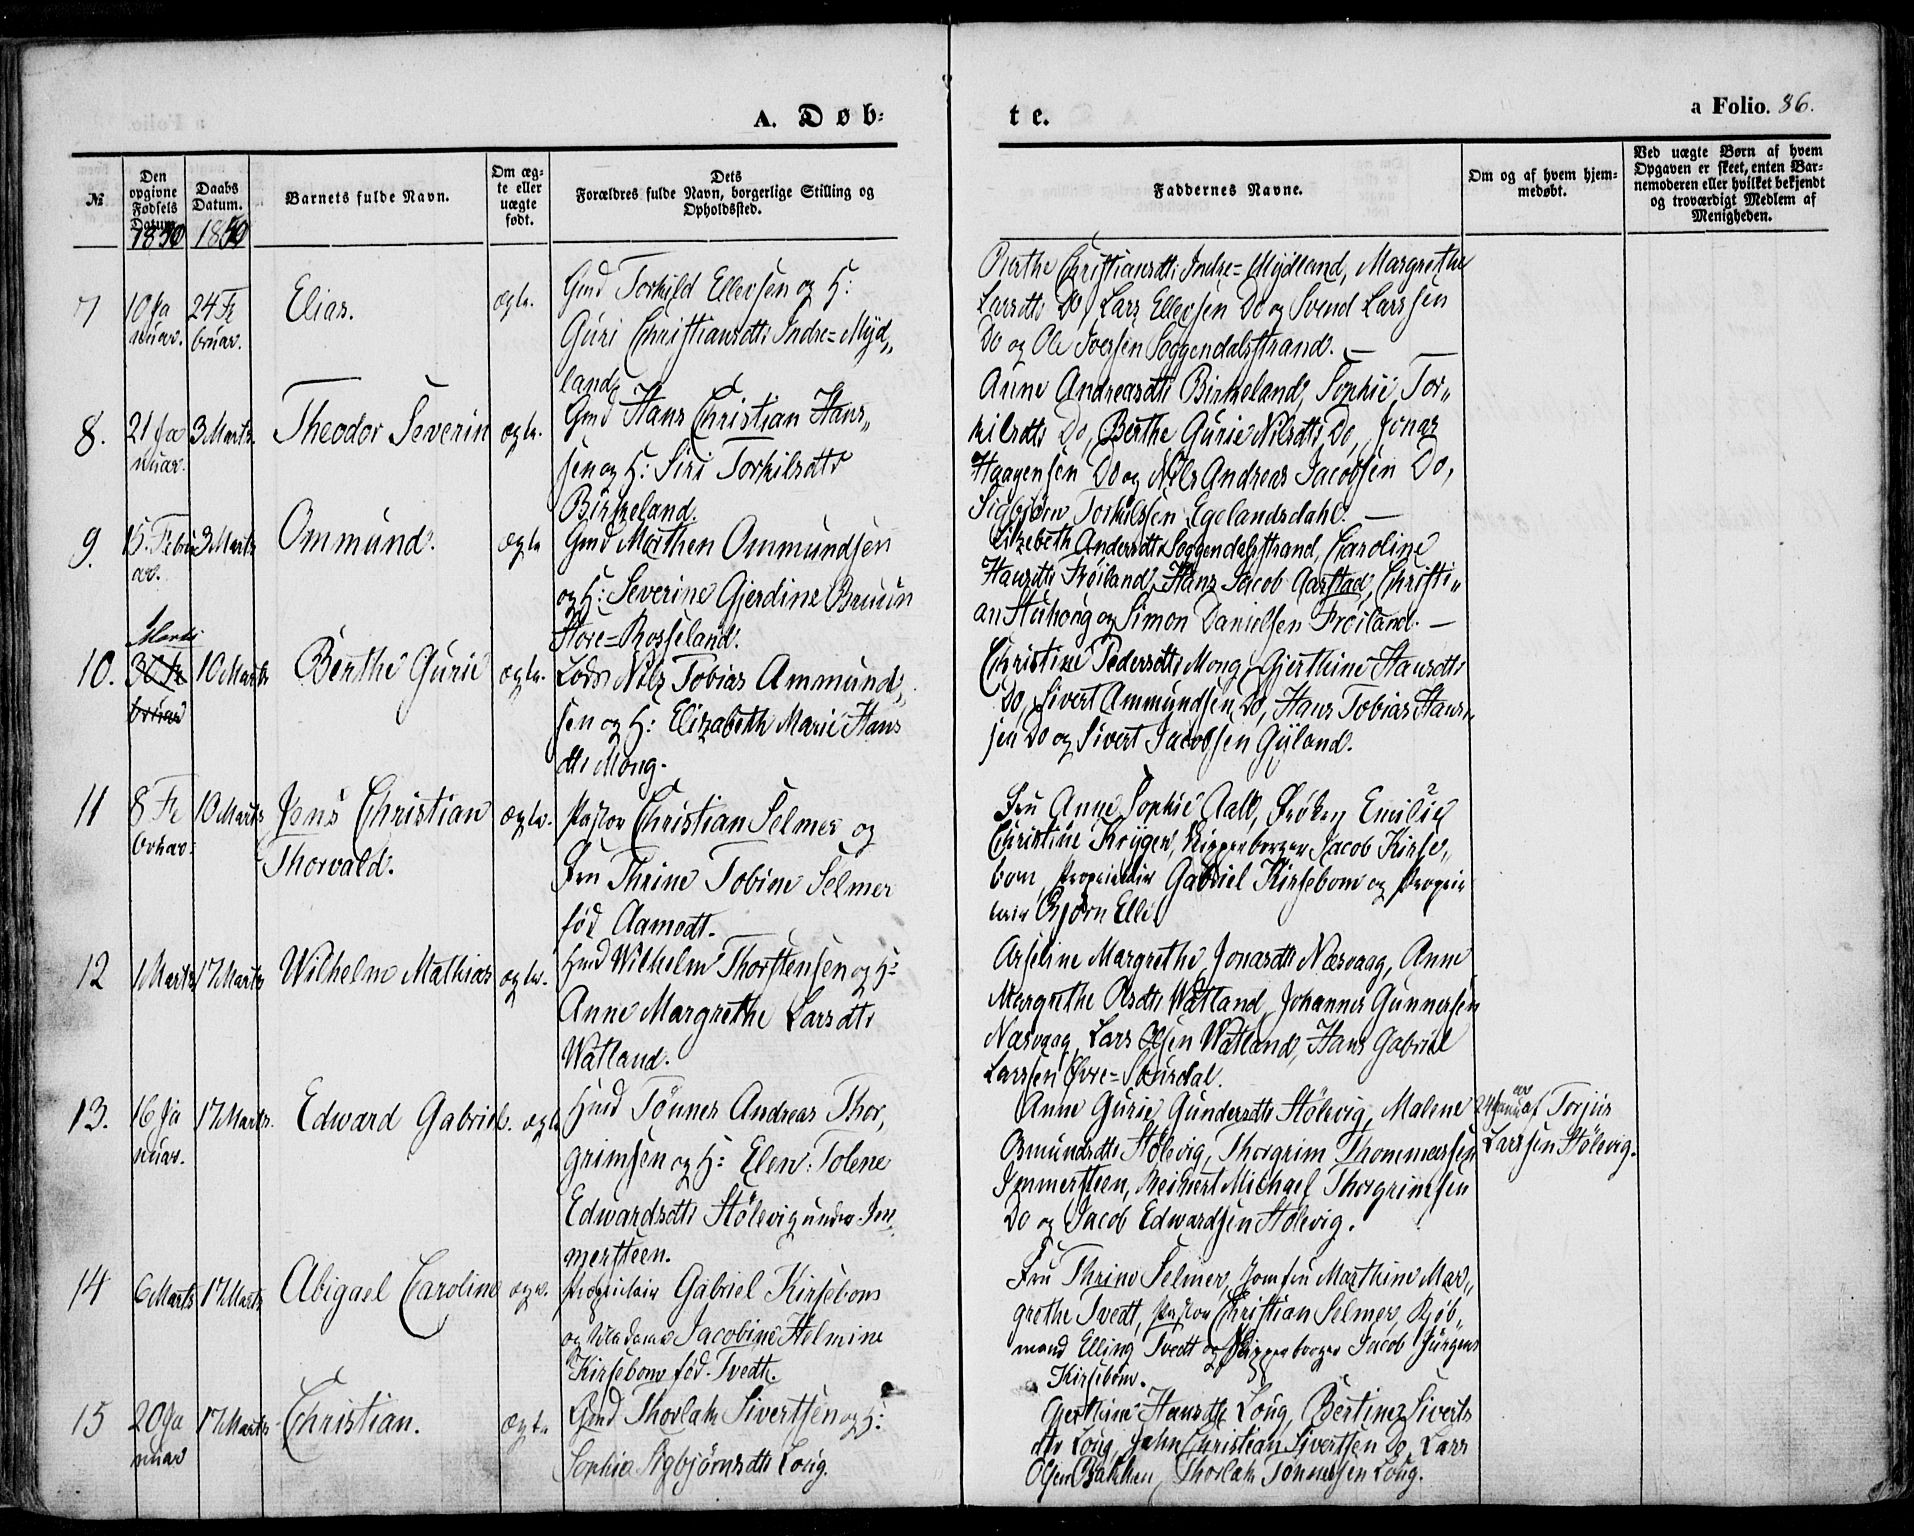 A. Døb-
te.
a Folio. 86.
№
Den
opgivne
Fødsels
Datum.
1850
Daabs
Datum.
1850
Barnets fulde Navn.
Om æg-
te eller
uægte
født.
Dets
Forældres fulde Navn, borgerlige Stilling og
Opholdssted.
Faddernes Navne.
Om og af hvem hjem-
medøbt.
Ved uægte Børn af hvem
Opgaven er skeet, enten Bar-
nemoderen eller hvilket bekjendt
og troværdigt Medlem af
Menigheden.
7
10 Ja
nuar.
24 Fe
bruar.
Elias.
ægte.
Gmd Torkild Ellevsen og H:
Guri Christiansdtr Indre=Myd„
land.
Berthe Christiansdtr Indre=Mydland, Margrethe
Larsdtr Do, Lars Ellevsen Do og Svend Larssen
Do og Ole Iversen Soggendalsstrand. —
8.
21 Ja
nuar.
3 Marts.
Theodor Severin
ægte.
Gmd Hans Christian Hans„
sen og H: Siri Torkilsdtr
Birkeland.
Anne Andreasdtr Birkeland, Sophie Tor„
kilsdtr Do, Berthe Gurie Nilsdtr Do, Jonas
Haagensen Do og Nils Andreas Jacobsen Do,
Sigbjørn Torkilssen Egelandsdahl. —
9.
15 Febru
ar.
3 Marts
Ommund.
ægte
Gmd Mathen Ommundsen
og H: Severine Gjerdine Bruun
Store=Rosseland.
Elizebeth Andersdtr Soggendalsstrand, Caroline
Hansdtr Frøiland, Hans Jacob Aarstad, Christi„
an Stuhoug og Simon Danielsen Frøiland. —
10.
Marts
30 Fe
bruar
10 Marts
Berthe Gurie
ægte.
Lods Nils Tobias Ammund„
sen og H: Elizabeth Marie Hans
dtr Mong.
Christine Pedersdtr Mong, Gjerthine Hansdtr
Do, Sivert Ammundsen Do, Hans Tobias Hans„
sen Do og Sivert Jacobsen Gyland.
11
8 Fe
bruar.
10 Marts
Jens Christian
Thorvald.
ægte.
Pastor Christian Selmer og
Fru Thrine Tobine Selmer
fød Aamodt.
Fru Anne Sophie Aall, Frøken Emilie
Christine Krøyger, Skipperborger Jacob Kirse„
bom, Proprietair Gabriel Kirsebom og Proprie
tair Bjørn Elle.
12
1 Marts
17 Marts
Wilhelm Mathias
ægte.
Hmd Wilhelm Thorstensen og H:
Anne Margrethe Larsdtr
Watland.
Aseline Margrethe Jonasdtr Næsvaag, Anne
Margrethe Olsdtr Watland, Johannes Gunnersen
Næsvaag, Lars Olsen Watland, Hans Gabriel
Larssen Øvre=Skursdal.
13.
16 Ja
nuar.
17 Marts.
Edward Gabriel.
ægte
Hmd Tønnes Andreas Thor„
grimsen og H: Elen Tolene
Edwardsdtr Stølevig under Im„
mersteen.
Anne Gurie Gundersdtr Stølevig, Malene
Osmundsdtr Stølevig, Thorgrim Thommessen
Immersteen, Reikert Michael Thorgrimsen
Do og Jacob Edwardsen Stølevig.
24 Januar af Torjus
Larssen Stølevig.
14
6 Marts
17 Marts
Abigael Caroline
ægte.
Proprietair Gabriel Kirsebom
og Madame Jacobine Helmine
Kirsebom fød Tvedt.
Fru Thrine Selmer, Jomfru Marthine Mar„
grethe Tvedt, Pastor Christian Selmer, Kjøb„
mand Elling Tvedt og Skipperborger Jacob Jürgens
Kirsebom.
15
20 Ja
nuar
17 Marts
Christian.
ægte
Gmd Thorlak Sivertsen og H:
Sophia Sigbjørnsdtr Loug.
Gjerthine Hansdtr Loug, Bertine Siverts
dtr Loug, John Christian Sivertsen Do, Lars
Olsen Bakken, Thorlak Tønnessen Loug.